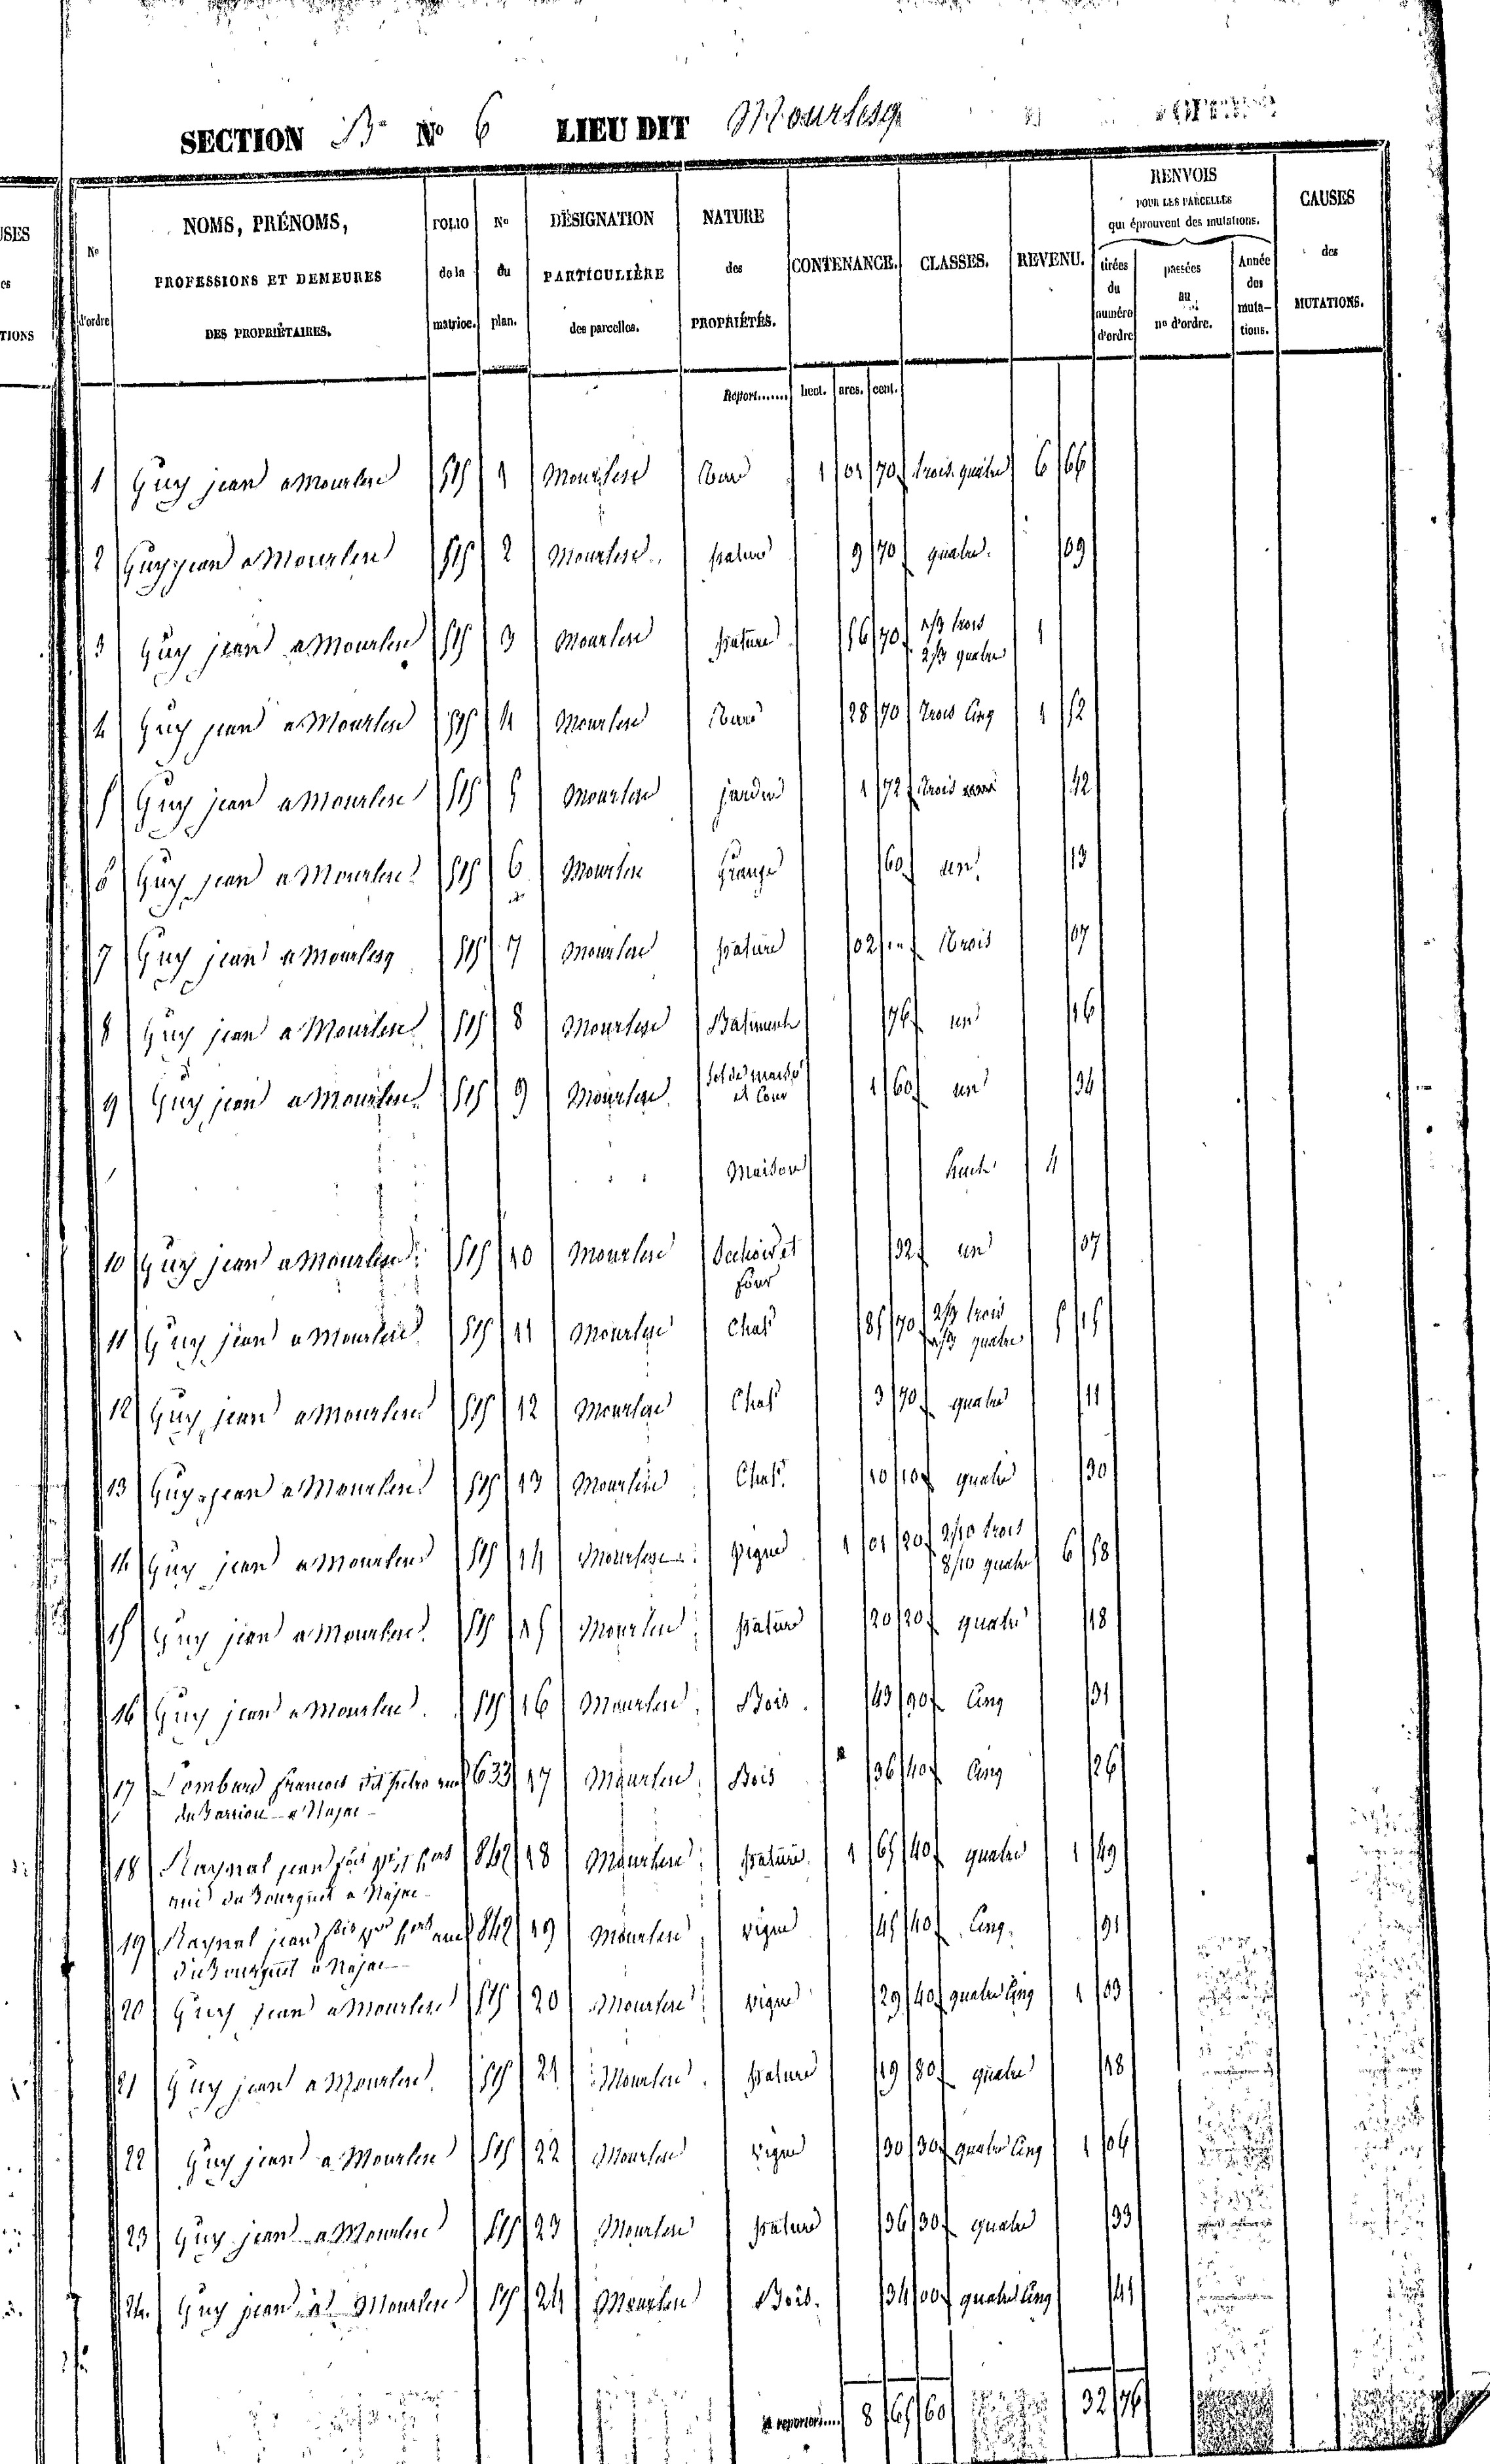 SECTION B No 6 LIEU DIT Mourlesq
USES
TIONS
No d'ordre
NOMS, PRÉNOMS, PROFESSIONS ET DEMEURES DES PROPRIÉTAIRES.
FOLIO de la matrice.
No du plan.
DÉSIGNATION PARTICULIÈRE des parcelles.
NATURE des PROPRIÉTÉS.
CONTENANCE.
CLASSES.
REVENU.
RENVOIS POUR LES PARCELLES qui éprouvent des mutations.
tirées du numéro d'ordre
passées au no d'ordre.
Année des mutations.
CAUSES des MUTATIONS.
Report...... hect. ares. cent.
1 Guy jean a Mourlesq 515 1 Mourlesq 1 01 70 trois quatre 6 66
2 Guy jean a Mourlesq 515 2 Mourlesq pature 9 70 quatre 09
3 Guy jean a Mourlesq 515 3 Mourlesq pature 56 70 1/3 trois 2/3 quatre 1
4 Guy jean a Mourlesq 515 4 Mourlesq 28 70 trois cinq 1 52
5 Guy jean a Mourlesq 515 5 Mourlesq jardin 1 72 trois 42
6 Guy jean a Mourlesq 515 6 Mourlesq Grange 60 un 13
7 Guy jean a Mourlesq 515 7 Mourlesq pature 02 " trois 07
8 Guy jean a Mourlesq 515 8 Mourlesq Batiment 76 un 16
9 Guy jean a Mourlesq 515 9 Mourlesq Sol de maison et Cour 1 60 un 34
Maison huit 4
10 Guy jean a Mourlesq 515 10 Mourlesq Sechoir et four 32 un 07
11 Guy jean a Mourlesq 515 11 Mourlesq Chat 85 70 2/3 trois 1/3 quatre 5 15
12 Guy jean a Mourlesq 515 12 Mourlesq Chat 3 70 quatre 11
13 Guy jean a Mourlesq 515 13 Mourlesq Chat 10 10 quatre 30
14 Guy jean a Mourlesq 515 14 Mourlesq vigne 1 01 20 2/10 trois 8/10 quatre 6 58
15 Guy jean a Mourlesq 515 15 Mourlesq pature 20 20 quatre 18
16 Guy jean a Mourlesq 515 16 Mourlesq Bois 43 90 Cinq 31
17 Lombard francois dit 633 17 Mourlesq Bois 36 40 Cinq 26
du Barriou a Najac
18 Raynal jean 842 18 Mourlesq pature 1 65 40 quatre 1 49
du Bourguet a Najac
19 Raynal jean 842 19 Mourlesq vigne 45 40 Cinq 91
du Bourguet a Najac
20 Guy jean a Mourlesq 515 20 Mourlesq vigne 29 40 quatre Cinq 1 03
21 Guy jean a Mourlesq 515 21 Mourlesq pature 19 80 quatre 18
22 Guy jean a Mourlesq 515 22 Mourlesq vigne 30 30 quatre Cinq 1 06
23 Guy jean a Mourlesq 515 23 Mourlesq pature 36 30 quatre 33
24 Guy jean a Mourlesq 515 24 Mourlesq Bois 34 00 quatre Cinq 41
A reporter.... 8 65 60 32 76